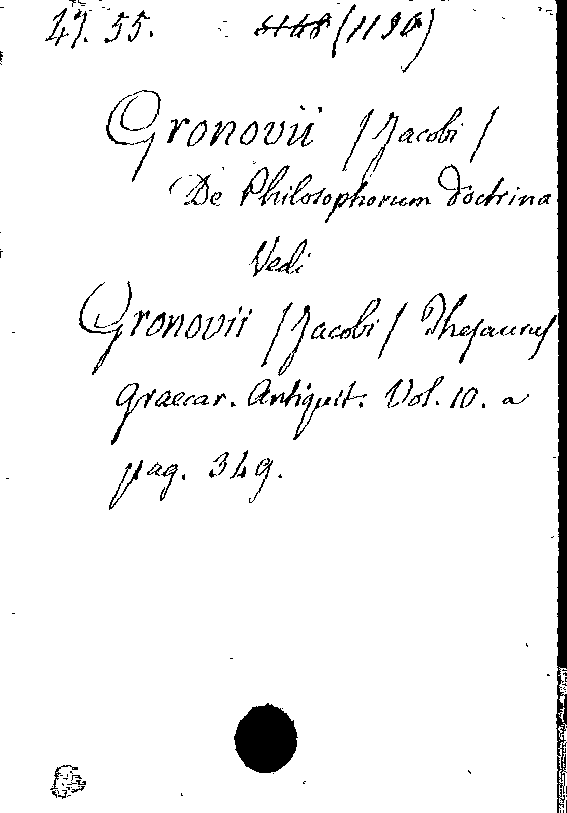 47. 55. (1196)
Gronovii /Jacobi/
De Philosophorum doctrina
Vedi
Gronovii /Jacobi/ Thesaurus
Graecar. Antiquit. Vol. 10. a
pag. 349.